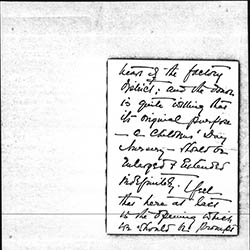 heart of the factory
District; and the donor
is quite willing that
its original purpose
— a Childrens' Day
Nursery — should be
Enlarged & Extended
indefinitely. I feel
that here at last
is the opening which
we should be prompt